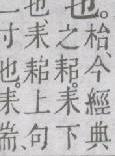 也。
枱、今經典
之耜。耒下
也、耒耜上句
寸也。耒耑、